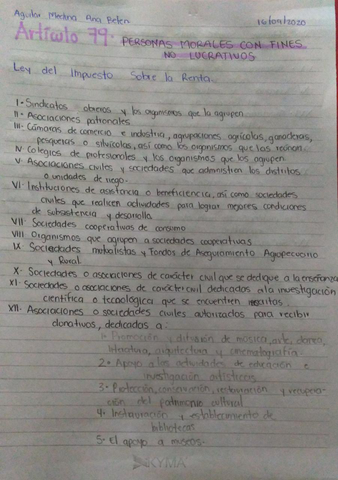 Aguilar Medina Ana Belen
16/04/2020
Artículo 79. PERSONAS MORALES CON FINES
NO LUCRATIVOS
Ley del Impuesto Sobre la Renta.
I- Sindicatos obreros y los organismos que los agrupen
II- Asociaciones patronales
III- Cámaras de comercio e industria, agrupaciones agrícolas, ganaderas,
pesqueras o silvícolas, así como los organismos que los reunan.
IV- Colegios de profesionales y los organismos que los agrupen
V- Asociaciones civiles y sociedades que administren los distritos
o unidades de riego.
VI- Instituciones de asistencia o beneficiencia, así como sociedades
civiles que realicen actividades para lograr mejores condiciones
de subsistencia y desarrollo
VII- Sociedades cooperativas de consumo
VIII Organismos que agrupen a sociedades cooperativas
IX- Sociedades mutualistas y Fondos de Aseguramiento Agropecuario
y Rural
X- Sociedades o asociaciones de carácter civil que se dedique a la enseñanza
XI- Sociedades o asociaciones de carácter civil dedicadas a la investigación
científica o tecnológica que se encuentren inscritos
XII- Asociaciones o sociedades civiles autorizados para recibir
donativos, dedicados a:
1- Promoción y difusión de música, arte, danza,
literatura, arquitectura y cinematografía
2- Apoyo a las actividades de educación e
investigación artísticos
3- Protección, conservación, restauración y recuperación
ción del patrimonio cultural
4- Instauración y establecimiento de
bibliotecas
5- el apoyo a museos.